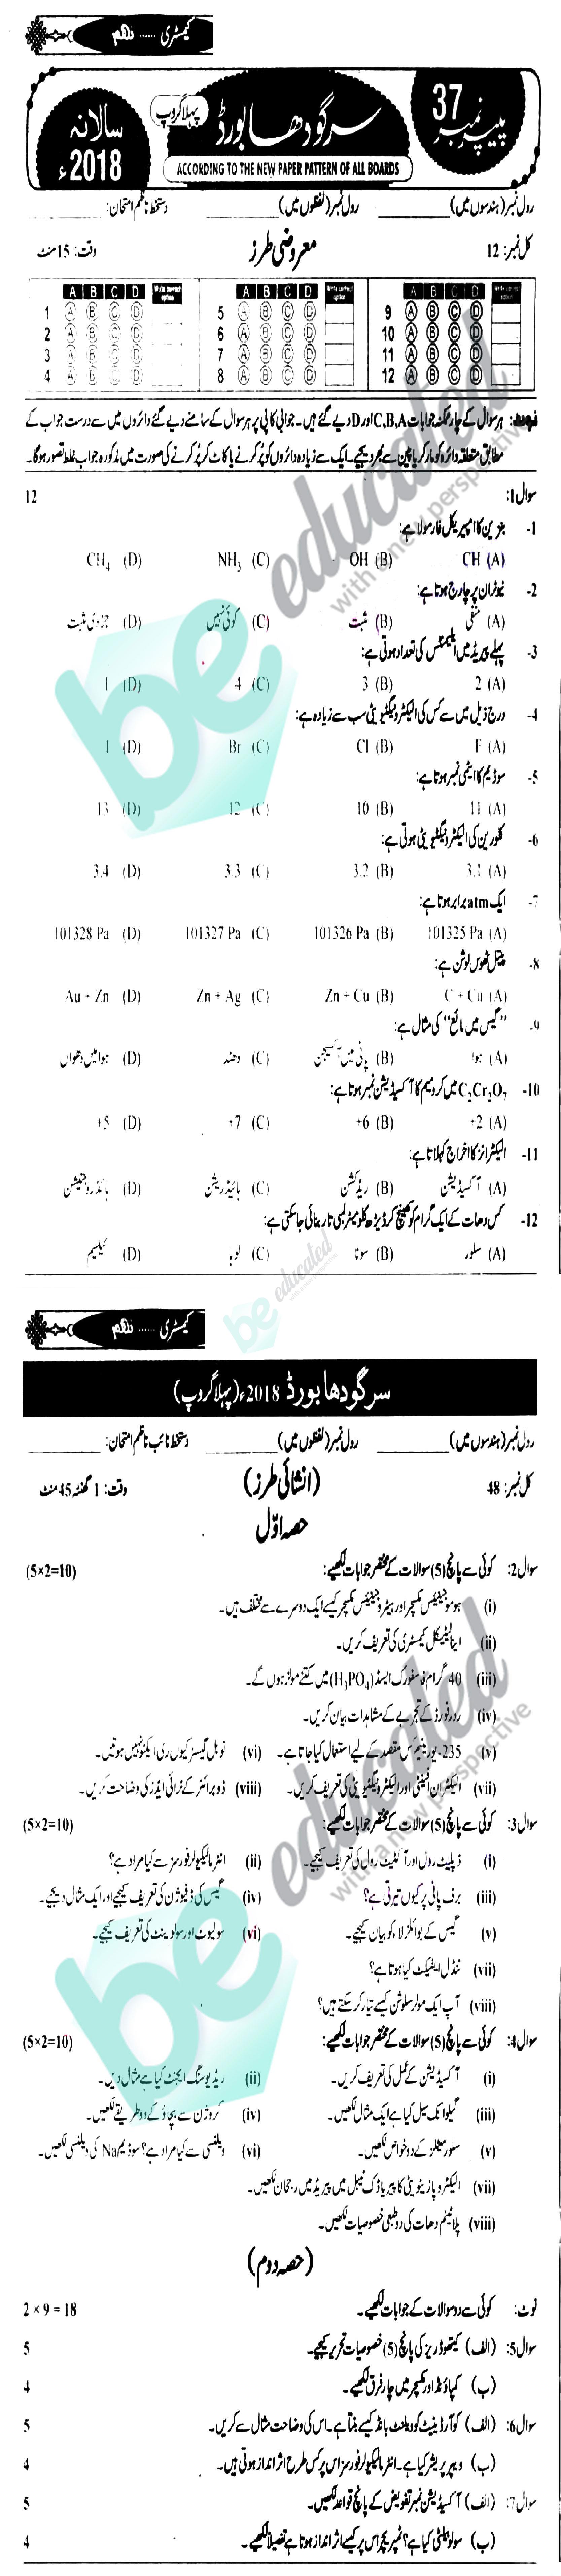 کیمسٹری ...... نہم
پیپر نمبر 37
سرگودھا بورڈ
پہلا گروپ
سالانہ 2018ء
ACCORDING TO THE NEW PAPER PATTERN OF ALL BOARDS
رول نمبر (ہندسوں میں) ________ رول نمبر (لفظوں میں) ________ دستخط ناظم امتحان: ________
کل نمبر: 12 معروضی طرز وقت: 15 منٹ
A B C D Write correct option A B C D Write correct option A B C D Write correct option
1 A B C D 5 A B C D 9 A B C D
2 A B C D 6 A B C D 10 A B C D
3 A B C D 7 A B C D 11 A B C D
4 A B C D 8 A B C D 12 A B C D
نوٹ: ہر سوال کے چار ممکنہ جوابات C,B,A اور D دیے گئے ہیں۔ جوابی کاپی پر ہر سوال کے سامنے دیے گئے دائروں میں سے درست جواب کے
مطابق متعلقہ دائرہ کو مارکر یا پین سے بھر دیجیے۔ ایک سے زیادہ دائروں کو پُر کرنے یا کاٹ کر پُر کرنے کی صورت میں مذکورہ جواب غلط تصور ہوگا۔
سوال1: 12
1- بنزین کا امپیریکل فارمولا ہے:
CH (A) OH (B) NH3 (C) CH4 (D)
2- نیوٹران پر چارج ہوتا ہے:
(A) منفی (B) مثبت (C) کوئی نہیں (D) جزوی مثبت
3- پہلے پیریڈ میں ایلیمنٹس کی تعداد ہوتی ہے:
2 (A) 3 (B) 4 (C) 1 (D)
4- درج ذیل میں سے کس کی الیکٹرونیگیٹیویٹی سب سے زیادہ ہے:
F (A) Cl (B) Br (C) I (D)
5- سوڈیم کا ایٹمی نمبر ہوتا ہے:
11 (A) 10 (B) 12 (C) 13 (D)
6- کلورین کی الیکٹرونیگیٹیویٹی ہوتی ہے:
3.1 (A) 3.2 (B) 3.3 (C) 3.4 (D)
7- ایک atm برابر ہوتا ہے:
101325 Pa (A) 101326 Pa (B) 101327 Pa (C) 101328 Pa (D)
8- پیتل ٹھوس سلوشن ہے:
C + Cu (A) Zn + Cu (B) Zn + Ag (C) Au + Zn (D)
9- "گیس میں مائع" کی مثال ہے:
(A) ہوا (B) پانی میں آکسیجن (C) دھند (D) ہوا میں دھواں
10- C2Cr2O7 میں کرومیم کا آکسیڈیشن نمبر ہوتا ہے:
+2 (A) +6 (B) +7 (C) +5 (D)
11- الیکٹرانز کا اخراج کہلاتا ہے:
(A) آکسیڈیشن (B) ریڈکشن (C) ہائیڈریشن (D) ہائڈروجنیشن
12- کس دھات کے ایک گرام کو کھینچ کر ڈیڑھ کلومیٹر لمبی تار بنائی جاسکتی ہے:
(A) سلور (B) سونا (C) لوہا (D) کیلسیم
be educated
کیمسٹری ...... نہم
سرگودھا بورڈ 2018ء (پہلا گروپ)
رول نمبر (ہندسوں میں) ________ رول نمبر (لفظوں میں) ________ دستخط نائب ناظم امتحان: ________
کل نمبر: 48 (انشائی طرز) وقت: 1 گھنٹہ 45 منٹ
حصہ اوّل
سوال2: کوئی سے پانچ (5) سوالات کے مختصر جوابات لکھیے: (5×2=10)
(i) ہوموجینئس مکسچر اور ہیٹروجینئس مکسچر کیسے ایک دوسرے سے مختلف ہیں۔
(ii) اینالیٹیکل کیمسٹری کی تعریف کریں۔
(iii) 40 گرام فاسفورک ایسڈ (H3PO4) میں کتنے مولز ہوں گے۔
(iv) ردرفورڈ کے تجربے کے مشاہدات بیان کریں۔
(v) 235-یورینیم کس مقصد کے لیے استعمال کیا جاتا ہے۔ (vi) نوبل گیسز کیوں ری ایکٹو نہیں ہوتیں۔
(vii) الیکٹران افینٹی اور الیکٹرونیگیٹیویٹی کی تعریف کریں۔ (viii) ڈوبرائنر کے ٹرائی ایڈز کی وضاحت کریں۔
سوال3: کوئی سے پانچ (5) سوالات کے مختصر جوابات لکھیے: (5×2=10)
(i) ڈپلیٹ رول اور آکٹیٹ رول کی تعریف کیجیے۔ (ii) انٹرمالیکیولر فورسز سے کیا مراد ہے؟
(iii) برف پانی پر کیوں تیرتی ہے؟ (iv) گیس کی ڈفیوژن کی تعریف کیجیے اور ایک مثال دیجیے۔
(v) گیس کے بوائلز لاء کو بیان کیجیے۔ (vi) سولیوٹ اور سولوینٹ کی تعریف کیجیے۔
(vii) ٹنڈل ایفیکٹ کیا ہوتا ہے؟
(viii) آپ ایک مولر سلوشن کیسے تیار کرسکتے ہیں؟
سوال4: کوئی سے پانچ (5) سوالات کے مختصر جوابات لکھیے: (5×2=10)
(i) آکسیڈیشن کے عمل کی تعریف کریں۔ (ii) ریڈیوسنگ ایجنٹ کیا ہے مثال دیں۔
(iii) گیلوانک سیل کیا ہے ایک مثال لکھیں۔ (iv) کروژن سے بچاؤ کے دو طریقے لکھیں۔
(v) سلور میٹلز کے دو خواص لکھیں۔ (vi) ویلنسی سے کیا مراد ہے؟ سوڈیم Na کی ویلنسی لکھیں۔
(vii) الیکٹروپازیٹیویٹی کا پیریاڈک ٹیبل میں پیریڈ میں رجحان لکھیں۔
(viii) پلاٹینم دھات کی دو طبعی خصوصیات لکھیں۔
(حصہ دوم)
نوٹ: کوئی سے دو سوالات کے جوابات لکھیے۔ 2 × 9 = 18
سوال5: (الف) کیتھوڈ ریز کی پانچ (5) خصوصیات تحریر کیجیے۔ 5
(ب) کمپاؤنڈ اور مکسچر میں چار فرق لکھیے۔ 4
سوال6: (الف) کوآرڈینیٹ کوویلنٹ بانڈ کیسے بنتا ہے۔ اس کی وضاحت مثال سے کریں۔ 5
(ب) ویپر پریشر کیا ہے۔ انٹرمالیکیولر فورسز اس پر کس طرح اثر انداز ہوتی ہیں۔ 4
سوال7: (الف) آکسیڈیشن نمبر تفویض کے پانچ قواعد لکھیں۔ 5
(ب) سولوبلیٹی کیا ہے؟ ٹمپریچر اس پر کیسے اثر انداز ہوتا ہے تفصیلاً لکھیے۔ 4
be educated
with a new perspective